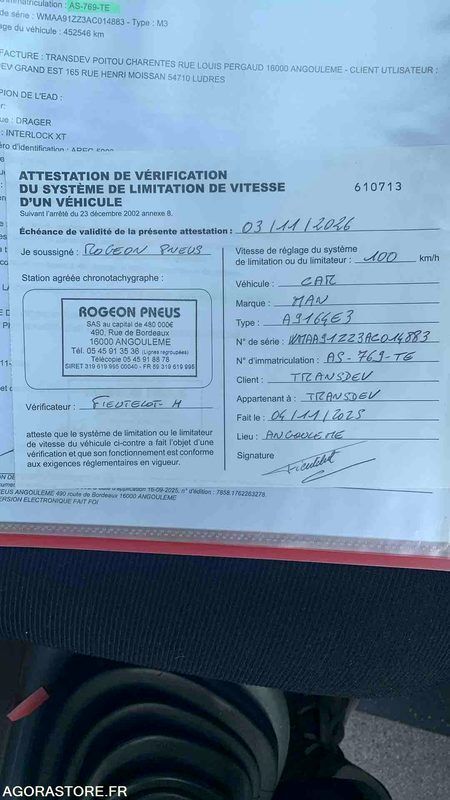 AS-769-TE
de série : WMAA91ZZ3AC014883 - Type : M3
age du véhicule : 452546 km
FACTURE : TRANSDEV POITOU CHARENTES RUE LOUIS PERGAUD 16000 ANGOULEME - CLIENT UTLISATEUR :
DEV GRAND EST 165 RUE HENRI MOISSAN 54710 LUDRES
PION DE L'EAD :
ue : DRAGER
: INTERLOCK XT
éro d'identification :
ATTESTATION DE VÉRIFICATION
DU SYSTÈME DE LIMITATION DE VITESSE
D'UN VÉHICULE
610713
Suivant l'arrêté du 23 décembre 2002 annexe 8.
Échéance de validité de la présente attestation : 03/11/2026
Je soussigné : ROGEON PNEUS
Station agréée chronotachygraphe :
ROGEON PNEUS
SAS au capital de 480 000€
490, Rue de Bordeaux
16000 ANGOULÊME
Tél. 05 45 91 35 36 (Lignes regroupées)
Télécopie 05 45 91 88 78
SIRET 319 619 995 00040 - FR 89 319 619 995
Vérificateur : FIEUTELOT-M
atteste que le système de limitation ou le limitateur
de vitesse du véhicule ci-contre a fait l'objet d'une
vérification et que son fonctionnement est conforme
aux exigences réglementaires en vigueur.
Vitesse de réglage du système
de limitation ou du limitateur : 100 km/h
Véhicule : CAR
Marque : MAN
Type : A9164E3
N° de série : WMAA91ZZ3AC014883
N° d'immatriculation : AS-769-TE
Client : TRANSDEV
Appartenant à : TRANSDEV
Fait le : 04/11/2025
Lieu : ANGOULEME
Signature
Fieutelot
d'application 16-09-2025, n° d'édition : 7658.1762263278.
EUS ANGOULEME 490 route de Bordeaux 16000 ANGOULEME
VERSION ELECTRONIQUE FAIT FOI
AGORASTORE.FR